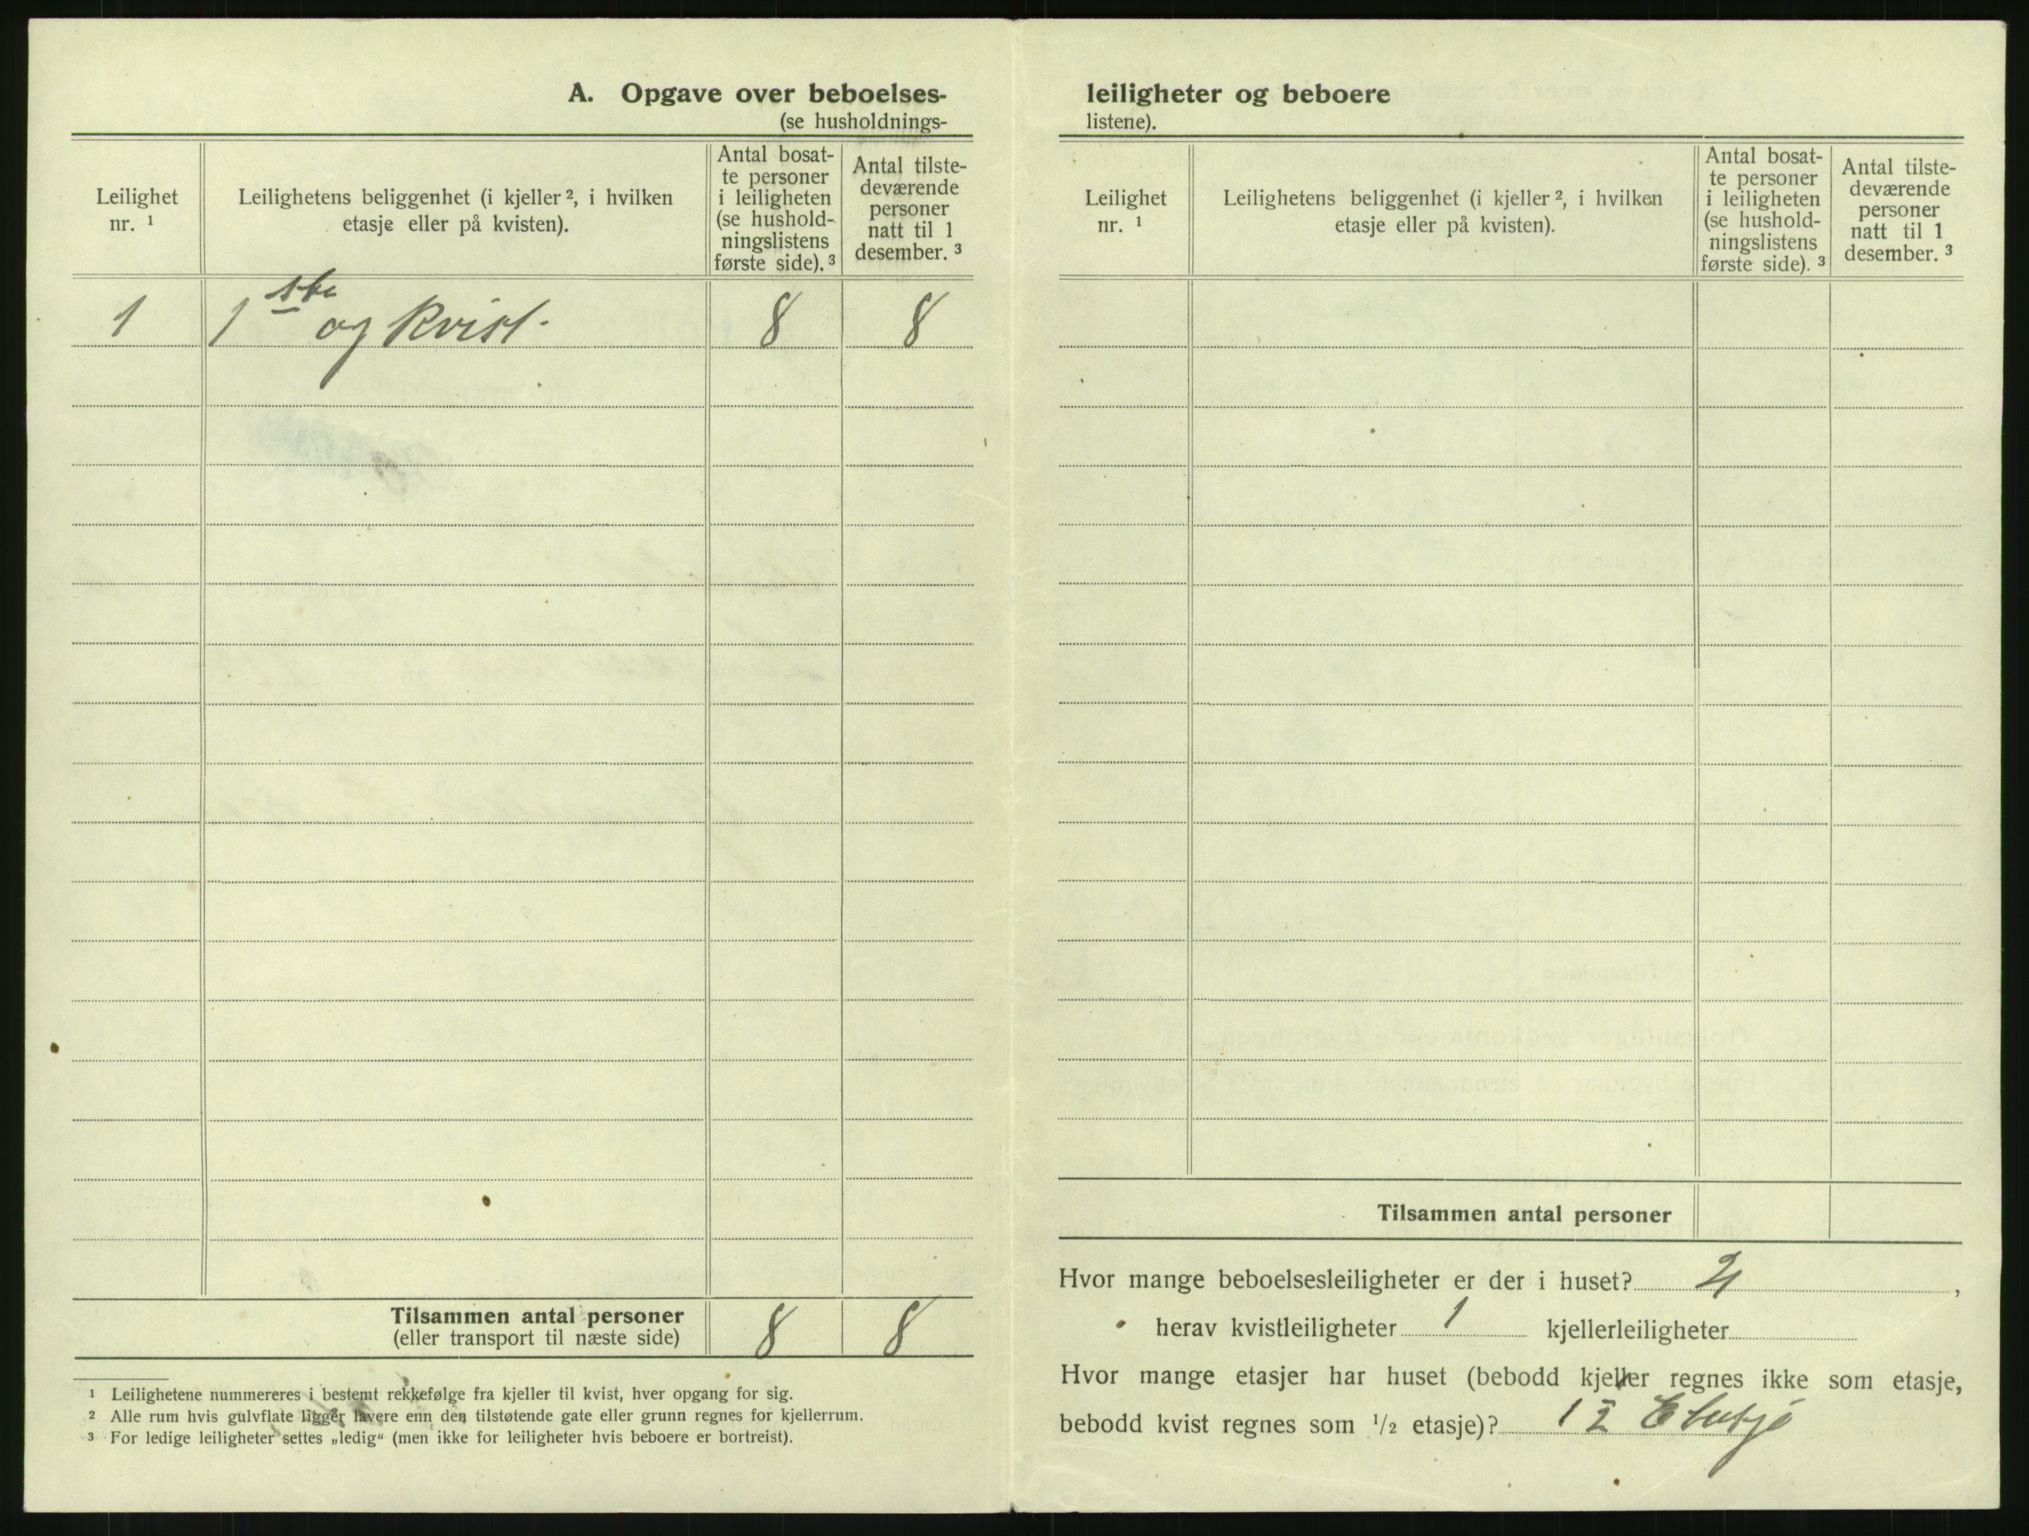 A. Opgave over beboelses-
(se husholdnings-
Leilighet nr. ¹
Leilighetens beliggenhet (i kjeller ², i hvilken
etasje eller på kvisten).
Antal bosat-
te personer
i leiligheten
(se hushold-
ningslistens
første side). ³
Antal tilste-
deværende
personer
natt til 1
desember. ³
1 1ste og kvist. 8 8
Tilsammen antal personer 8 8
(eller transport til næste side)
¹ Leilighetene nummereres i bestemt rekkefølge fra kjeller til kvist, hver opgang for sig.
² Alle rum hvis gulvflate ligger lavere enn den tilstøtende gate eller grunn regnes for kjellerrum.
³ For ledige leiligheter settes „ledig“ (men ikke for leiligheter hvis beboere er bortreist).
leiligheter og beboere
listene).
Leilighet nr. ¹
Leilighetens beliggenhet (i kjeller ², i hvilken
etasje eller på kvisten).
Antal bosat-
te personer
i leiligheten
(se hushold-
ningslistens
første side). ³
Antal tilste-
deværende
personer
natt til 1
desember. ³
Tilsammen antal personer
Hvor mange beboelsesleiligheter er der i huset?
herav kvistleiligheter 1 kjellerleiligheter
Hvor mange etasjer har huset (bebodd kjeller regnes ikke som etasje,
bebodd kvist regnes som ¹/₂ etasje)? 1 ½